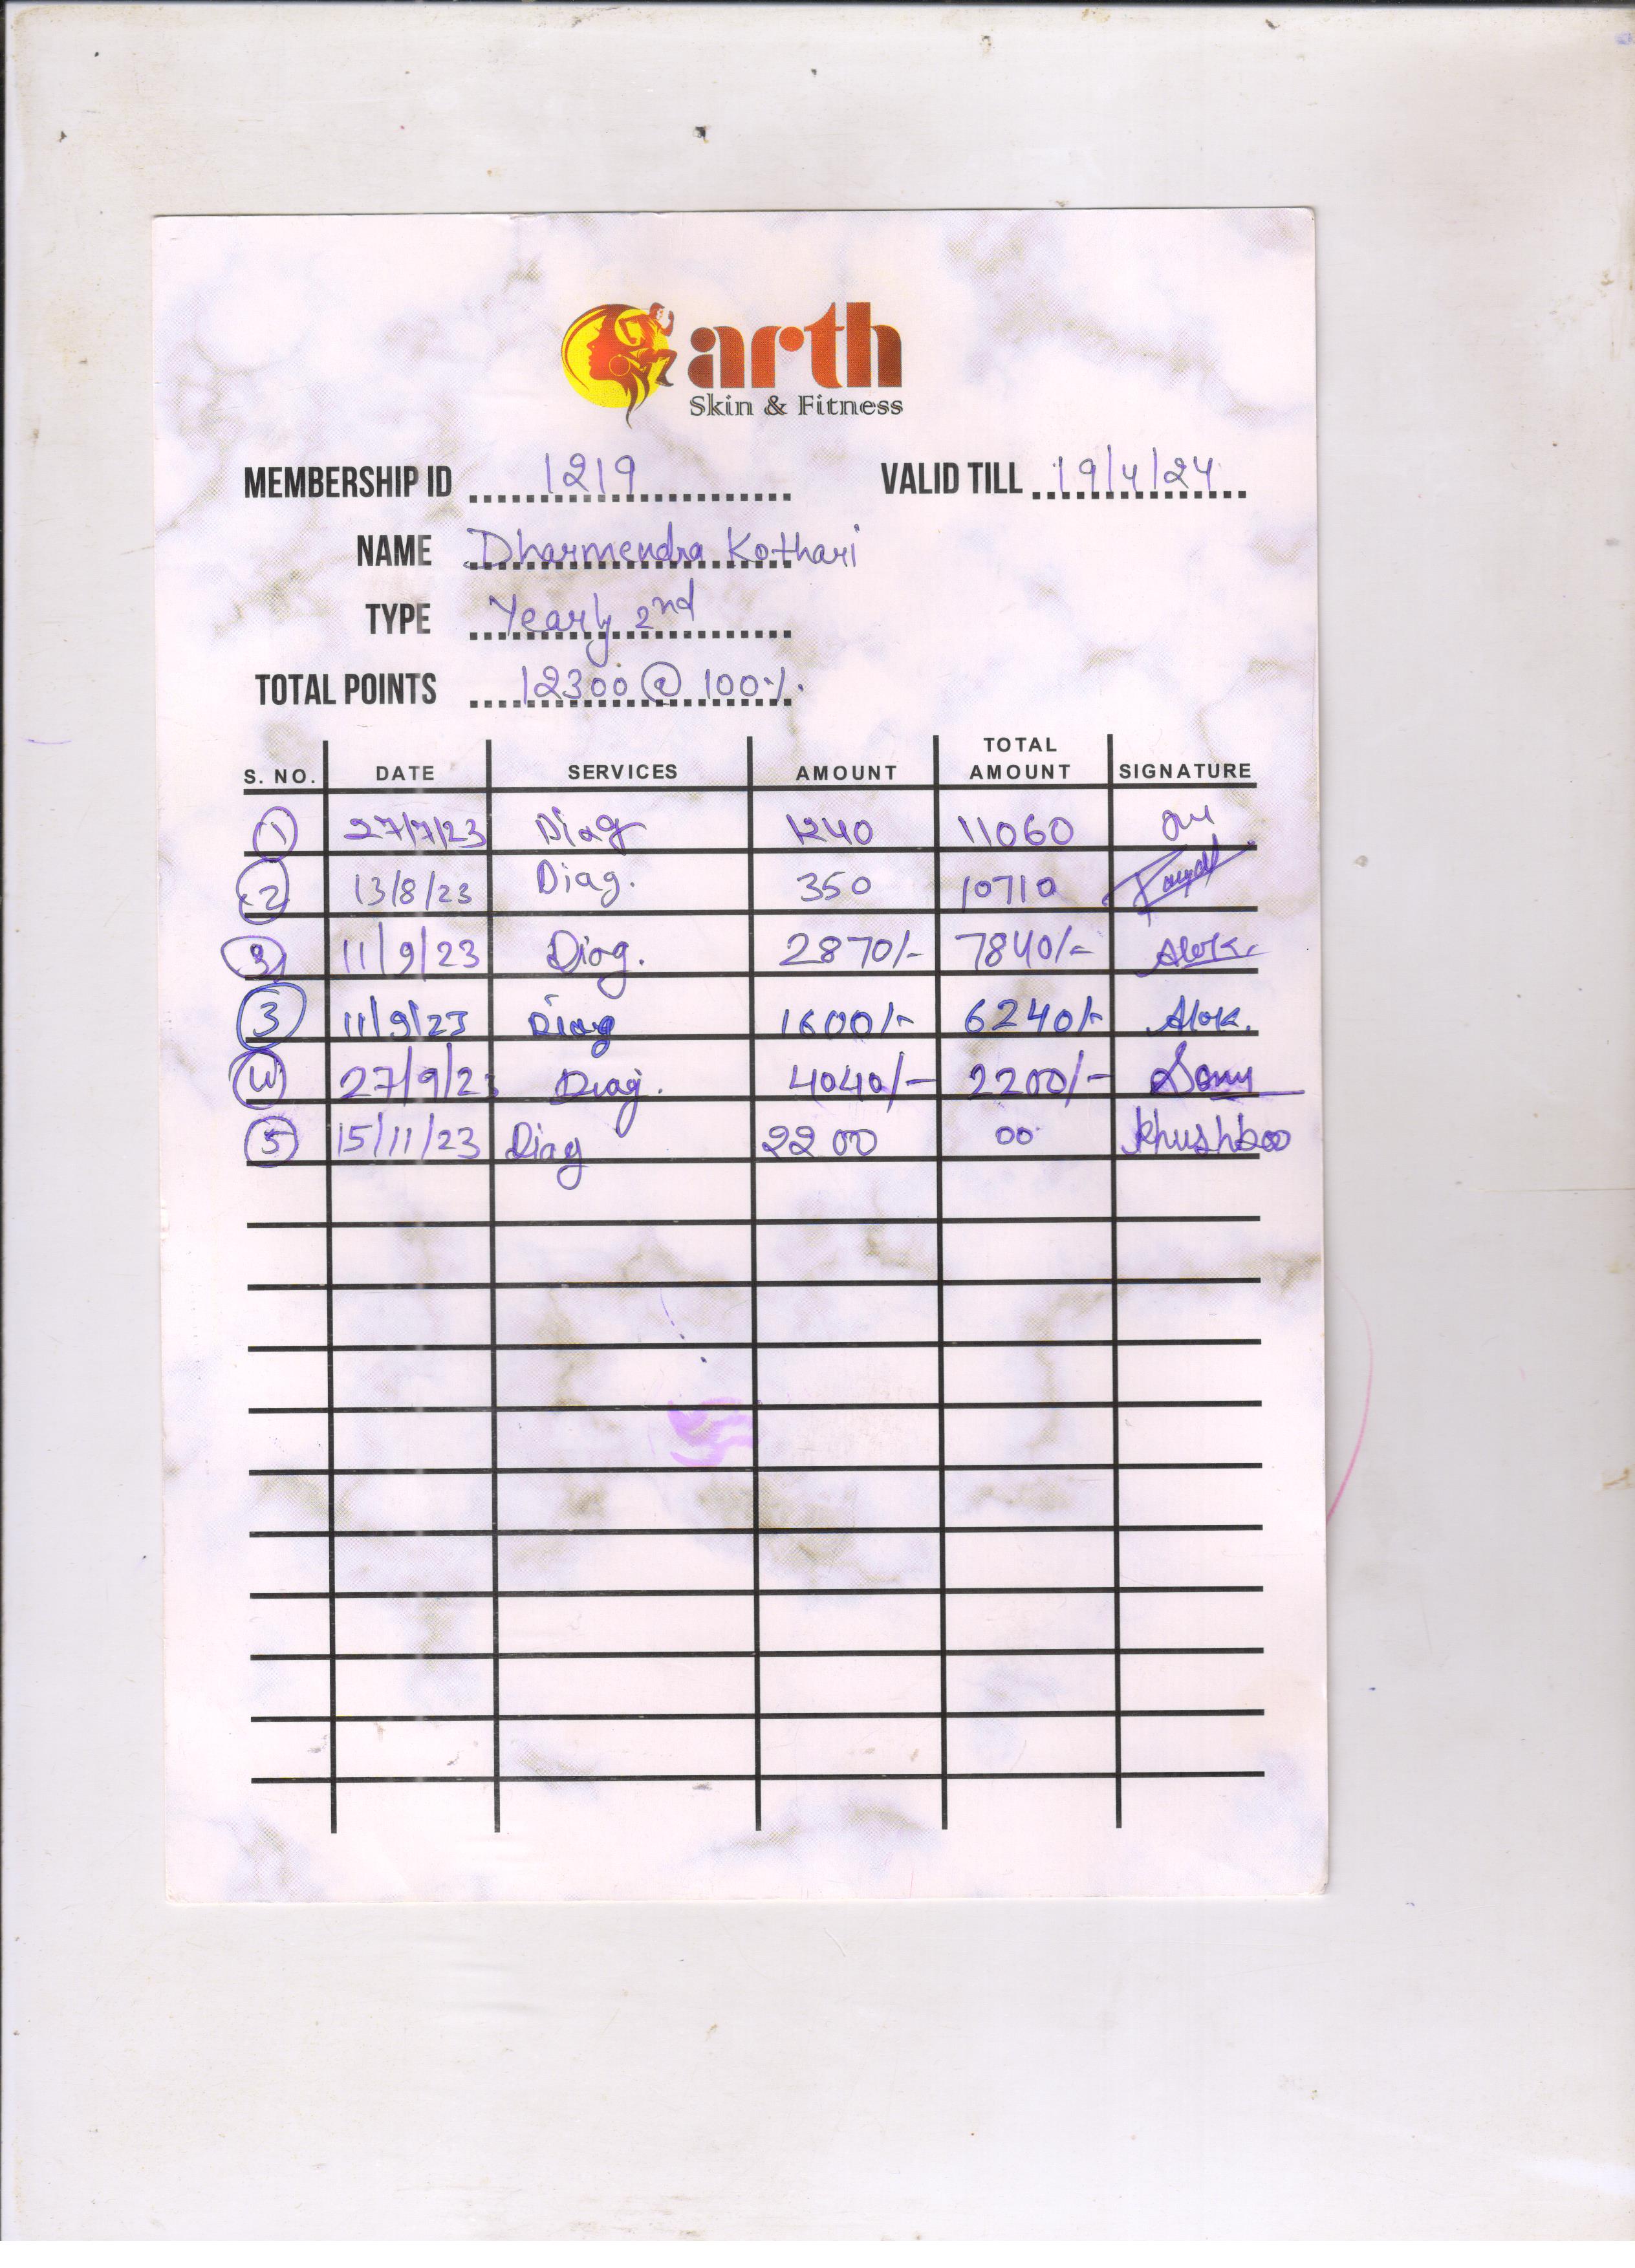 arth
Skin & Fitness
MEMBERSHIP ID 1219 VALID TILL 19/4/24
NAME Dharmendra Kothari
TYPE Yearly 2nd
TOTAL POINTS 12300 @ 100%
S. NO. DATE SERVICES AMOUNT TOTAL AMOUNT SIGNATURE
1 27/7/23 Diag 1240 11060
2 13/8/23 Diag. 350 10710
3 11/9/23 Diag. 2870/- 7840/- Alok.
3 11/9/23 Diag 1600/- 6240/- Alok.
4 27/9/23 Diag. 4040/- 2200/- Sonu
5 15/11/23 Diag 2200 00 Khushboo